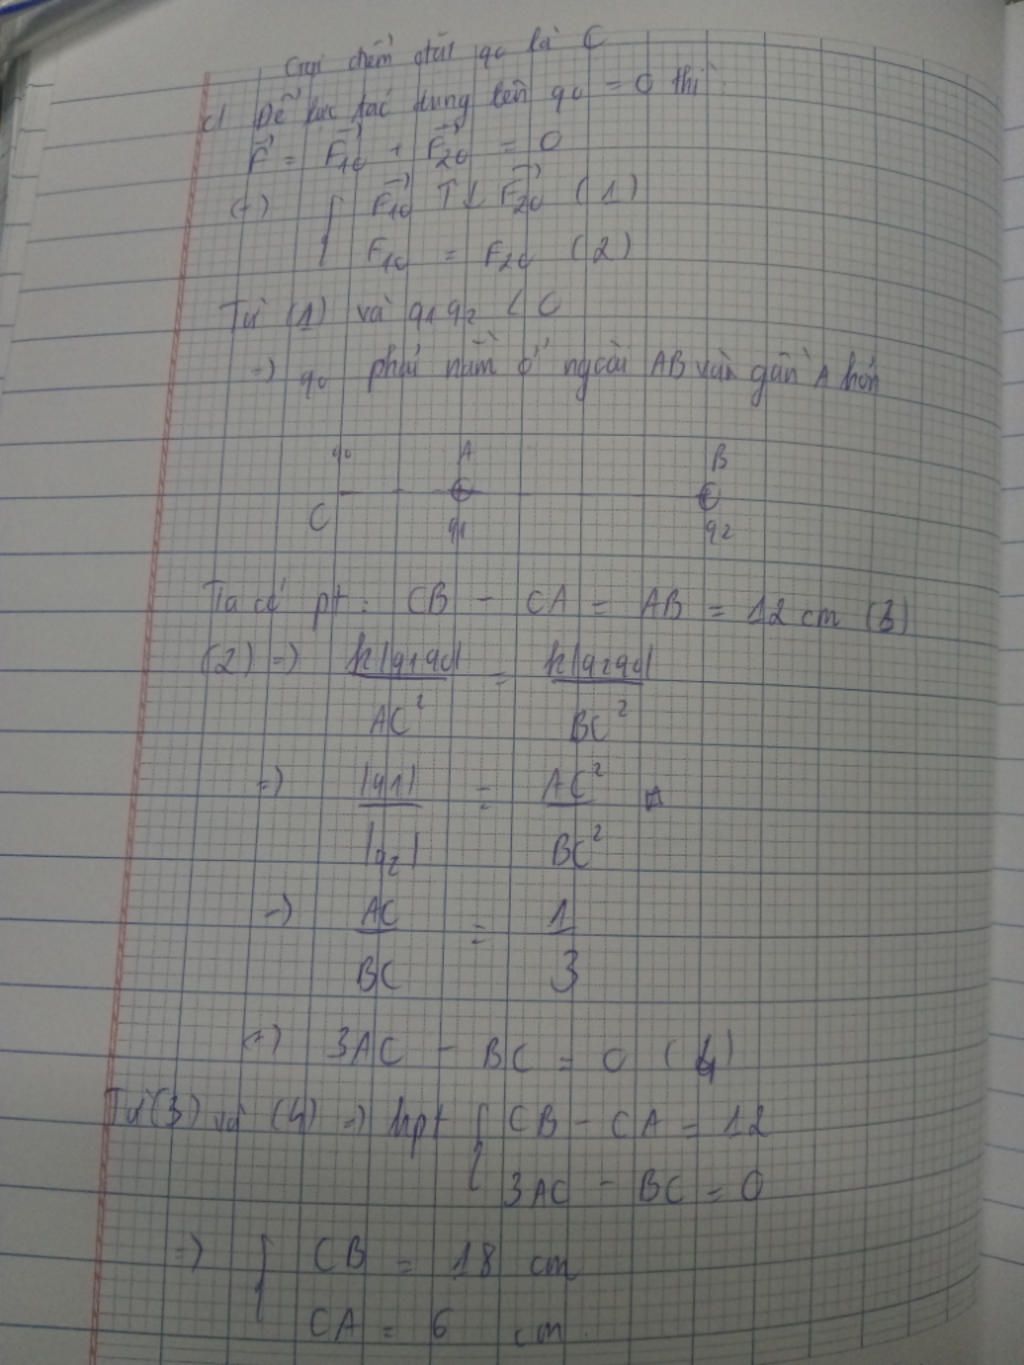 Gọi điểm đặt q0 là C
c) Để lực tác dụng lên q0 = 0 thì:
F⃗ = F⃗10 + F⃗20 = 0
(+) { F⃗10 ↑↓ F⃗20 (1)
F10 = F20 (2)
Từ (1) và q1 q2 < 0
=> q0 phải nằm ở ngoài AB và gần A hơn
q0 A B
C q1 q2
Ta có pt: CB - CA = AB = 12 cm (3)
(2) => k|q1q0| / AC² = k|q2q0| / BC²
=> |q1| / |q2| = AC² / BC²
=> AC / BC = 1 / 3
(=) 3AC - BC = 0 (4)
Từ (3) và (4) => hpt { CB - CA = 12
3AC - BC = 0
=> { CB = 18 cm
CA = 6 cm